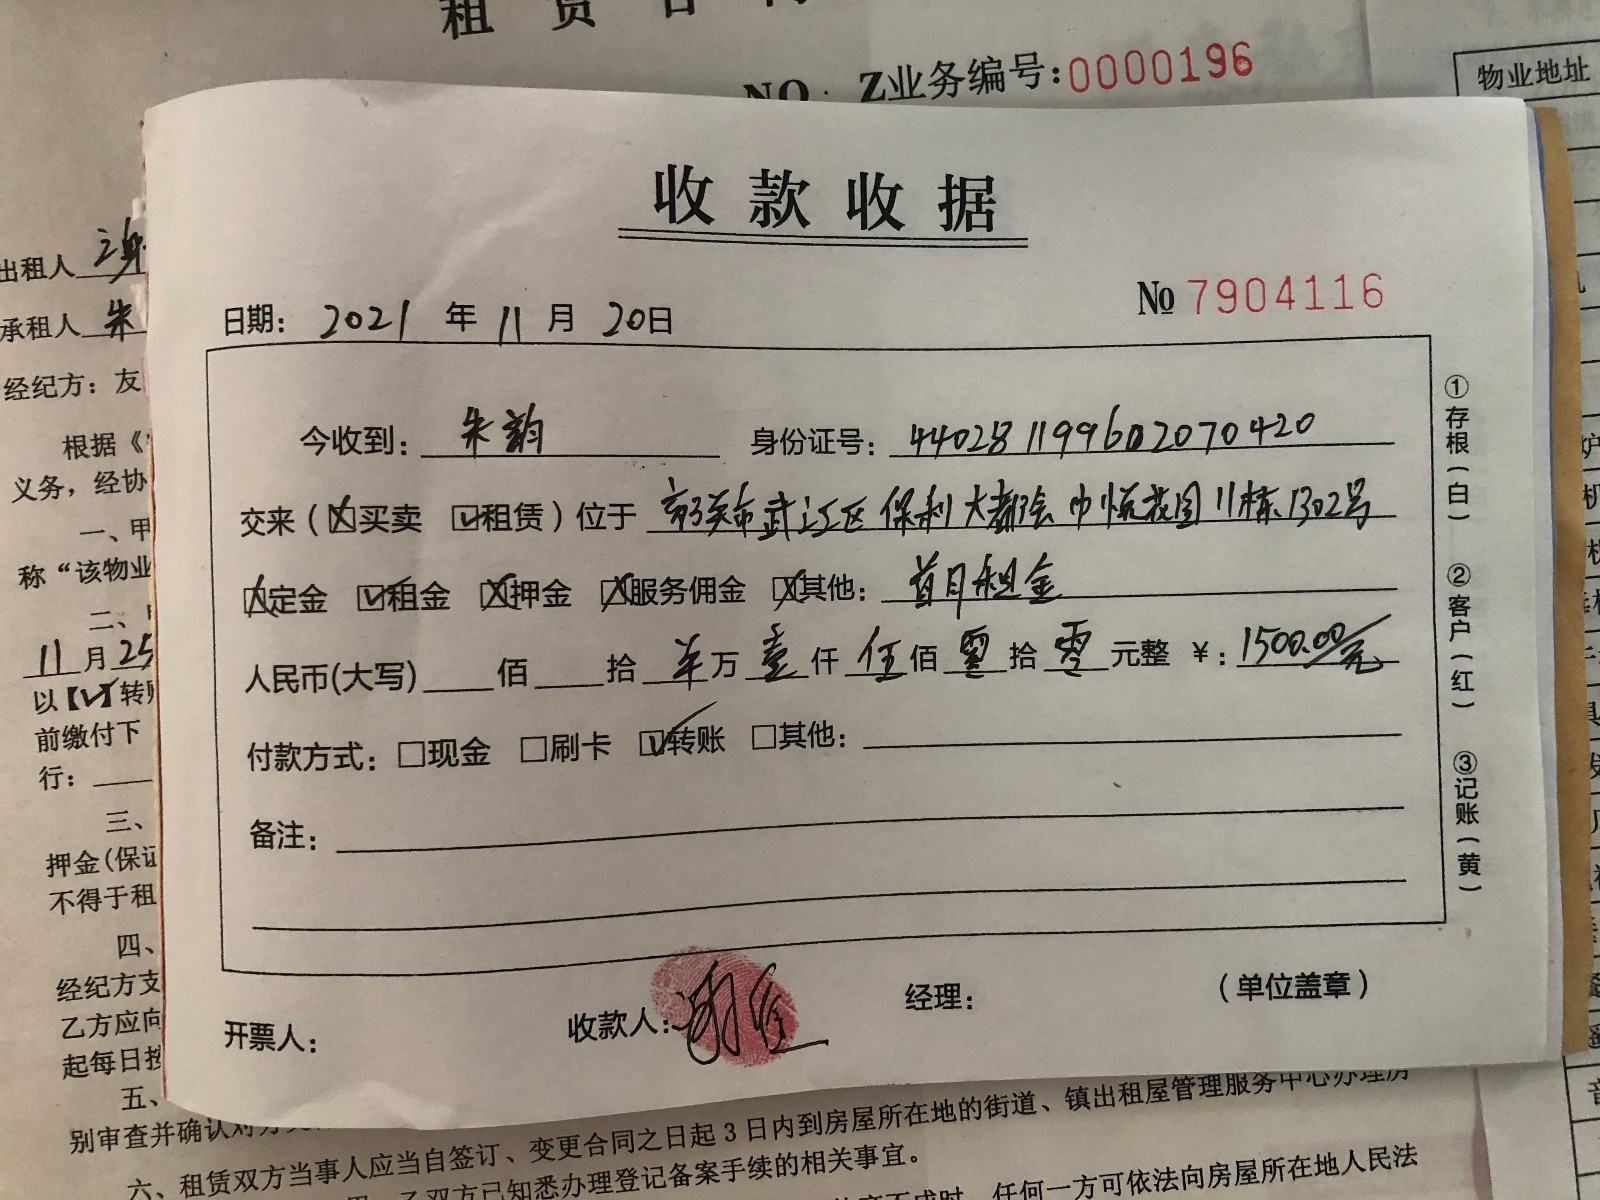 租赁合同
NO. Z业务编号:0000196
物业地址
收款收据
No 7904116
日期: 2021 年 11 月 20日
今收到: 朱韵 身份证号: 440281199602070420
交来(☒买卖 ☑租赁)位于 韶关市武江区保利大都会中悦花园11栋1302号
☒定金 ☑租金 ☒押金 ☒服务佣金 ☒其他: 首月租金
人民币(大写)____佰____拾 羊 万 壹 仟 伍 佰 零 拾 零 元整 ¥: 1500.00元
付款方式: □现金 □刷卡 ☑转账 □其他:
备注:
开票人: 收款人: 谢 经理: (单位盖章)
①存根(白)
②客户(红)
③记账(黄)
出租人 谢
承租人 朱
经纪方: 友
根据《
义务,经协
一、甲
称“该物业
二、
11月25
以【√】转账
前缴付下
行:
三、
押金(保证
不得于租
四、
经纪方支
乙方应向
起每日按
五、
别审查并确认对方
六、租赁双方当事人应当自签订、变更合同之日起3日内到房屋所在地的街道、镇出租屋管理服务中心办理房
乙双方已知悉办理登记备案手续的相关事宜。
不成时,任何一方可依法向房屋所在地人民法